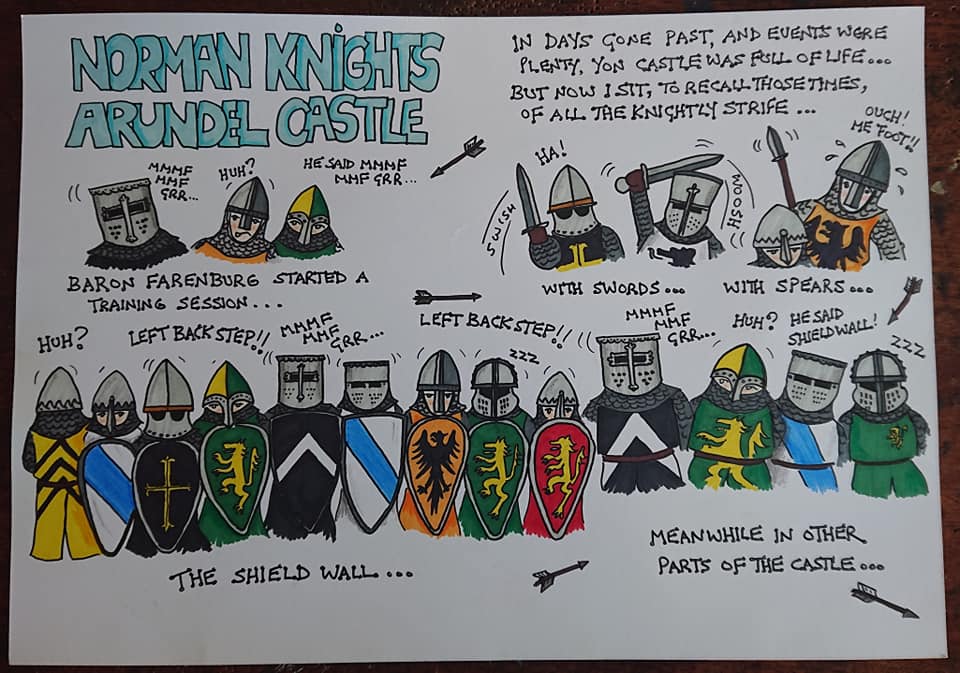 NORMAN KNIGHTS
ARUNDEL CASTLE
IN DAYS GONE PAST, AND EVENTS WERE
PLENTY, YON CASTLE WAS FULL OF LIFE...
BUT NOW I SIT, TO RECALL THOSE TIMES,
OF ALL THE KNIGHTLY STRIFE...
MMMF
MMF
GRR...
HUH?
HE SAID MMMF
MMF GRR...
BARON FARENBURG STARTED A
TRAINING SESSION...
HA!
SWISH
WOOSH
OUCH!
ME FOOT!!
WITH SWORDS...
WITH SPEARS...
HUH?
LEFT BACK STEP!!
MMMF
MMF
GRR...
LEFT BACK STEP!!
ZZZ
MMMF
MMF
GRR...
HUH?
HE SAID
SHIELD WALL!
ZZZ
THE SHIELD WALL...
MEANWHILE IN OTHER
PARTS OF THE CASTLE...